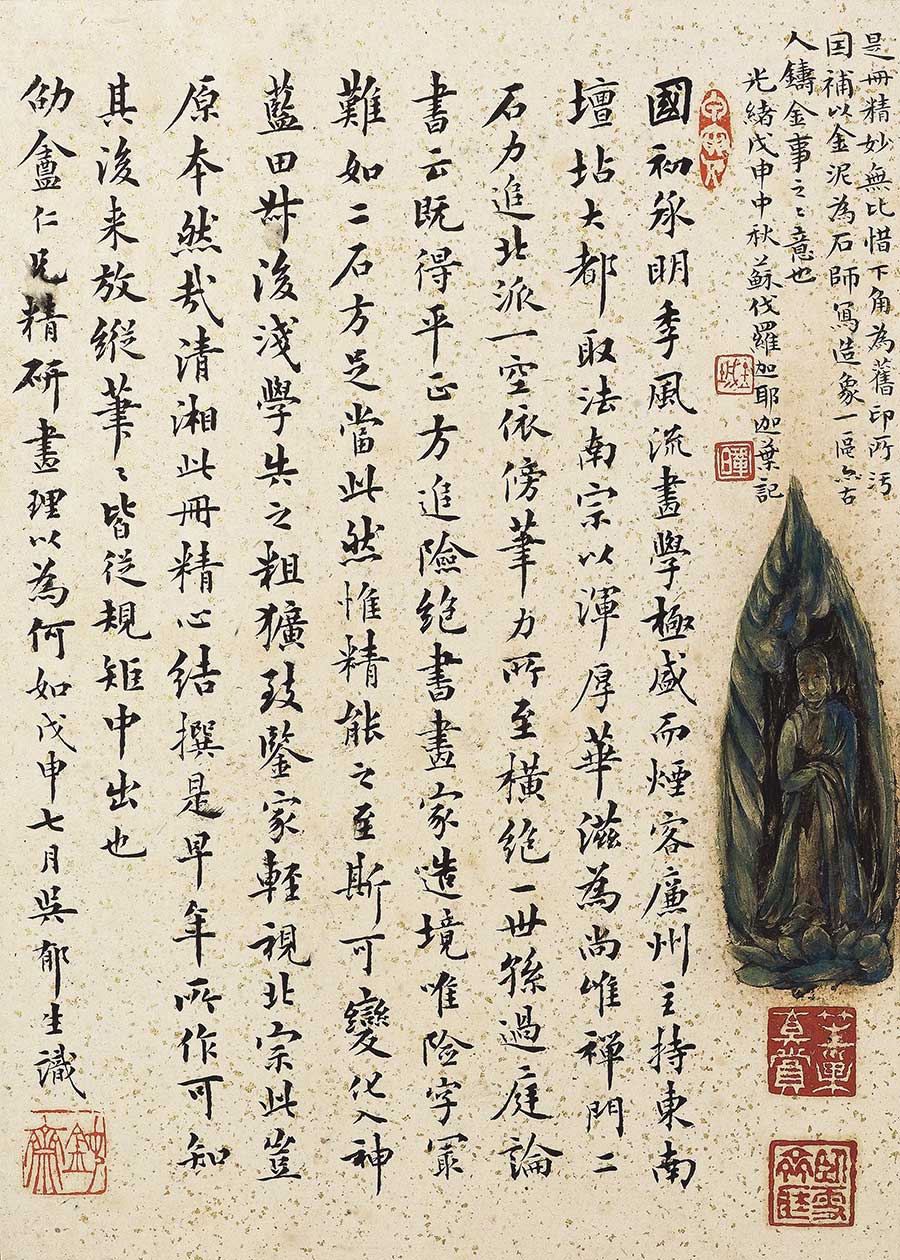 是冊精妙無比惜下角為舊印所汚
因補以金泥為石師寫造象一區亦古
人鑄金事之之意也
光緒戊申中秋蘇伐羅迦耶迦葉記
國初承明季風流畫學極盛而煙客廉州主持東南
壇坫大都取法南宗以渾厚華滋為尚唯禪門二
石力追北派一空依傍筆力所至橫絕一世孫過庭論
書云既得平正方追險絕書畫家造境唯險字㝡
難如二石方足當此然惟精能之至斯可變化入神
藍田叔後淺學失之粗獷致鑒家輕視北宗此豈
原本然哉清湘此冊精心結撰是早年所作可知
其後来放縱筆筆皆從規矩中出也
劬盦仁兄精研畫理以為何如戊申七月吳郁生識
真賞
臥雪
鈍齋